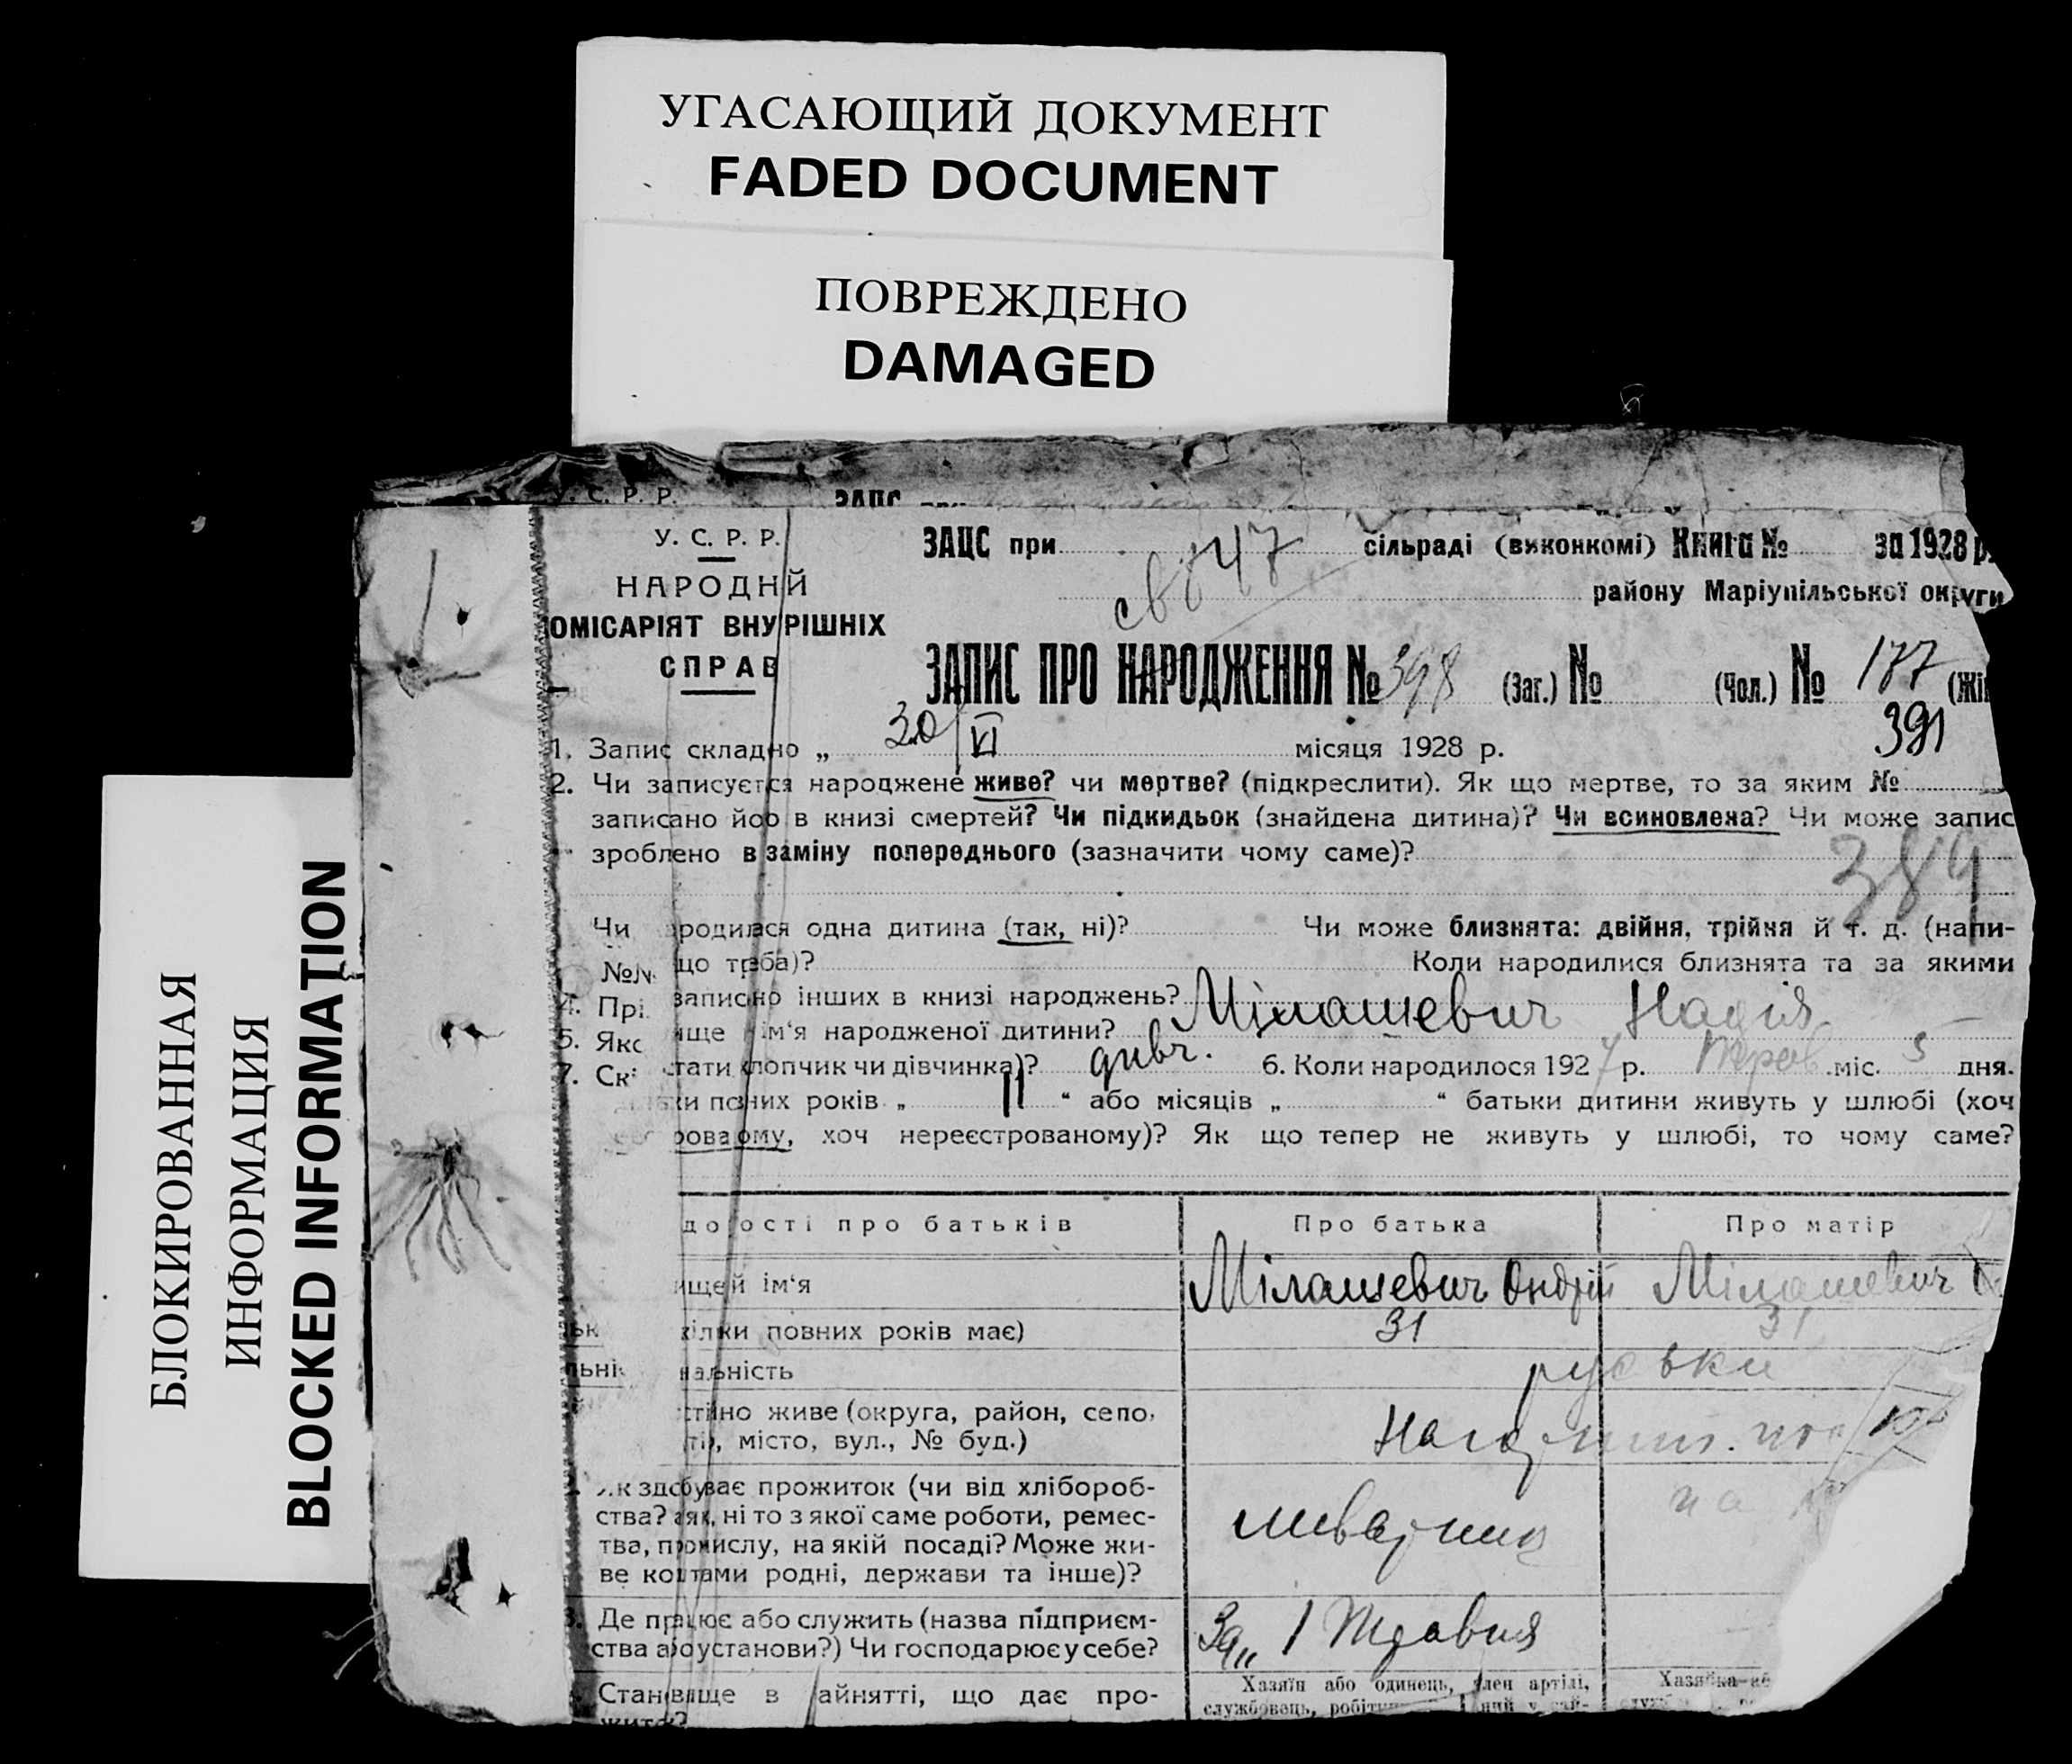 УГАСАЮЩИЙ ДОКУМЕНТ
FADED DOCUMENT
ПОВРЕЖДЕНО
DAMAGED
БЛОКИРОВАННАЯ
ИНФОРМАЦИЯ
BLOCKED INFORMATION
У. С. Р. Р.
У. С. Р. Р.
НАРОДНІЙ
ОМІСАРІЯТ ВНУРІШНІХ
СПРАВ
ЗАЦС при 47 сільраді (виконкомі) Книга № за 1928 р.
району Маріупільської округи
ЗАПИС ПРО НАРОДЖЕННЯ № 398 (Заг.) № (Чол.) № 177 (Жі
391
1. Запис складно „ 30/VI місяця 1928 р.
2. Чи записується народжене живе? чи мертве? (підкреслити). Як що мертве, то за яким №
записано йоо в книзі смертей? Чи підкидьок (знайдена дитина)? Чи всиновлена? Чи може запис
зроблено в заміну попереднього (зазначити чому саме)?
384
Чи родилася одна дитина (так, ні)? Чи може близнята: двійня, трійня й т. д. (напи-
що треба)? Коли народилися близнята та за якими
записано інших в книзі народжень?
4. Прі ище ім‘я народженої дитини? Мілашевич Надія
5. Яко стати хлопчик чи дівчинка)? дивч. 6. Коли народилося 1927 р. Трав. міс. 5 дня.
7. Скі ки повних років „ 11 “ або місяців „ “ батьки дитини живуть у шлюбі (хоч
рованому, хоч нереєстрованому)? Як що тепер не живуть у шлюбі, то чому саме?
домості про батьків Про батька Про матір
ище й ім‘я Мілашевич Ондрій Мілашевич
кілки повних років має) 31 31
нальність
стійно живе (округа, район, село,
місто, вул., № буд.)
Як здобуває прожиток (чи від хлібороб-
ства? а як, ні то з якої саме роботи, ремес-
тва, промислу, на якій посаді? Може жи-
ве коштами родні, держави та інше)?
Де працює або служить (назва підприєм-
ства або установи?) Чи господарює у себе? Зд„ 1 Травня
Становище в зайнятті, що дає про-
житок?
Хазяїн або одинець, член артілі,
службовець,